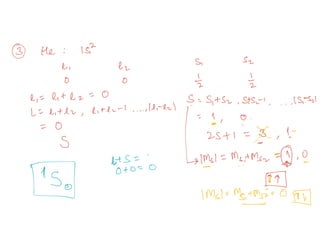 ③ He : 1s²
l₁ l₂
0 0
l₁ = l₁ + l₂ = 0
L = l₁ + l₂ , l₁ + l₂ - 1 ....., |l₁ - l₂|
= 0
S
¹S₀
L + S =
0 + 0 = 0
S₁ S₂
1/2 1/2
S = S₁ + S₂ , S₁+S₂-1, ....., |S₁-S₂|
= 1, 0
2S + 1 = 3, 1
|Ms| = Ms₁ + Ms₂ = 1, 0
↑↑
|Ms| = Ms₁ + Ms₂ = 0 ↑↓